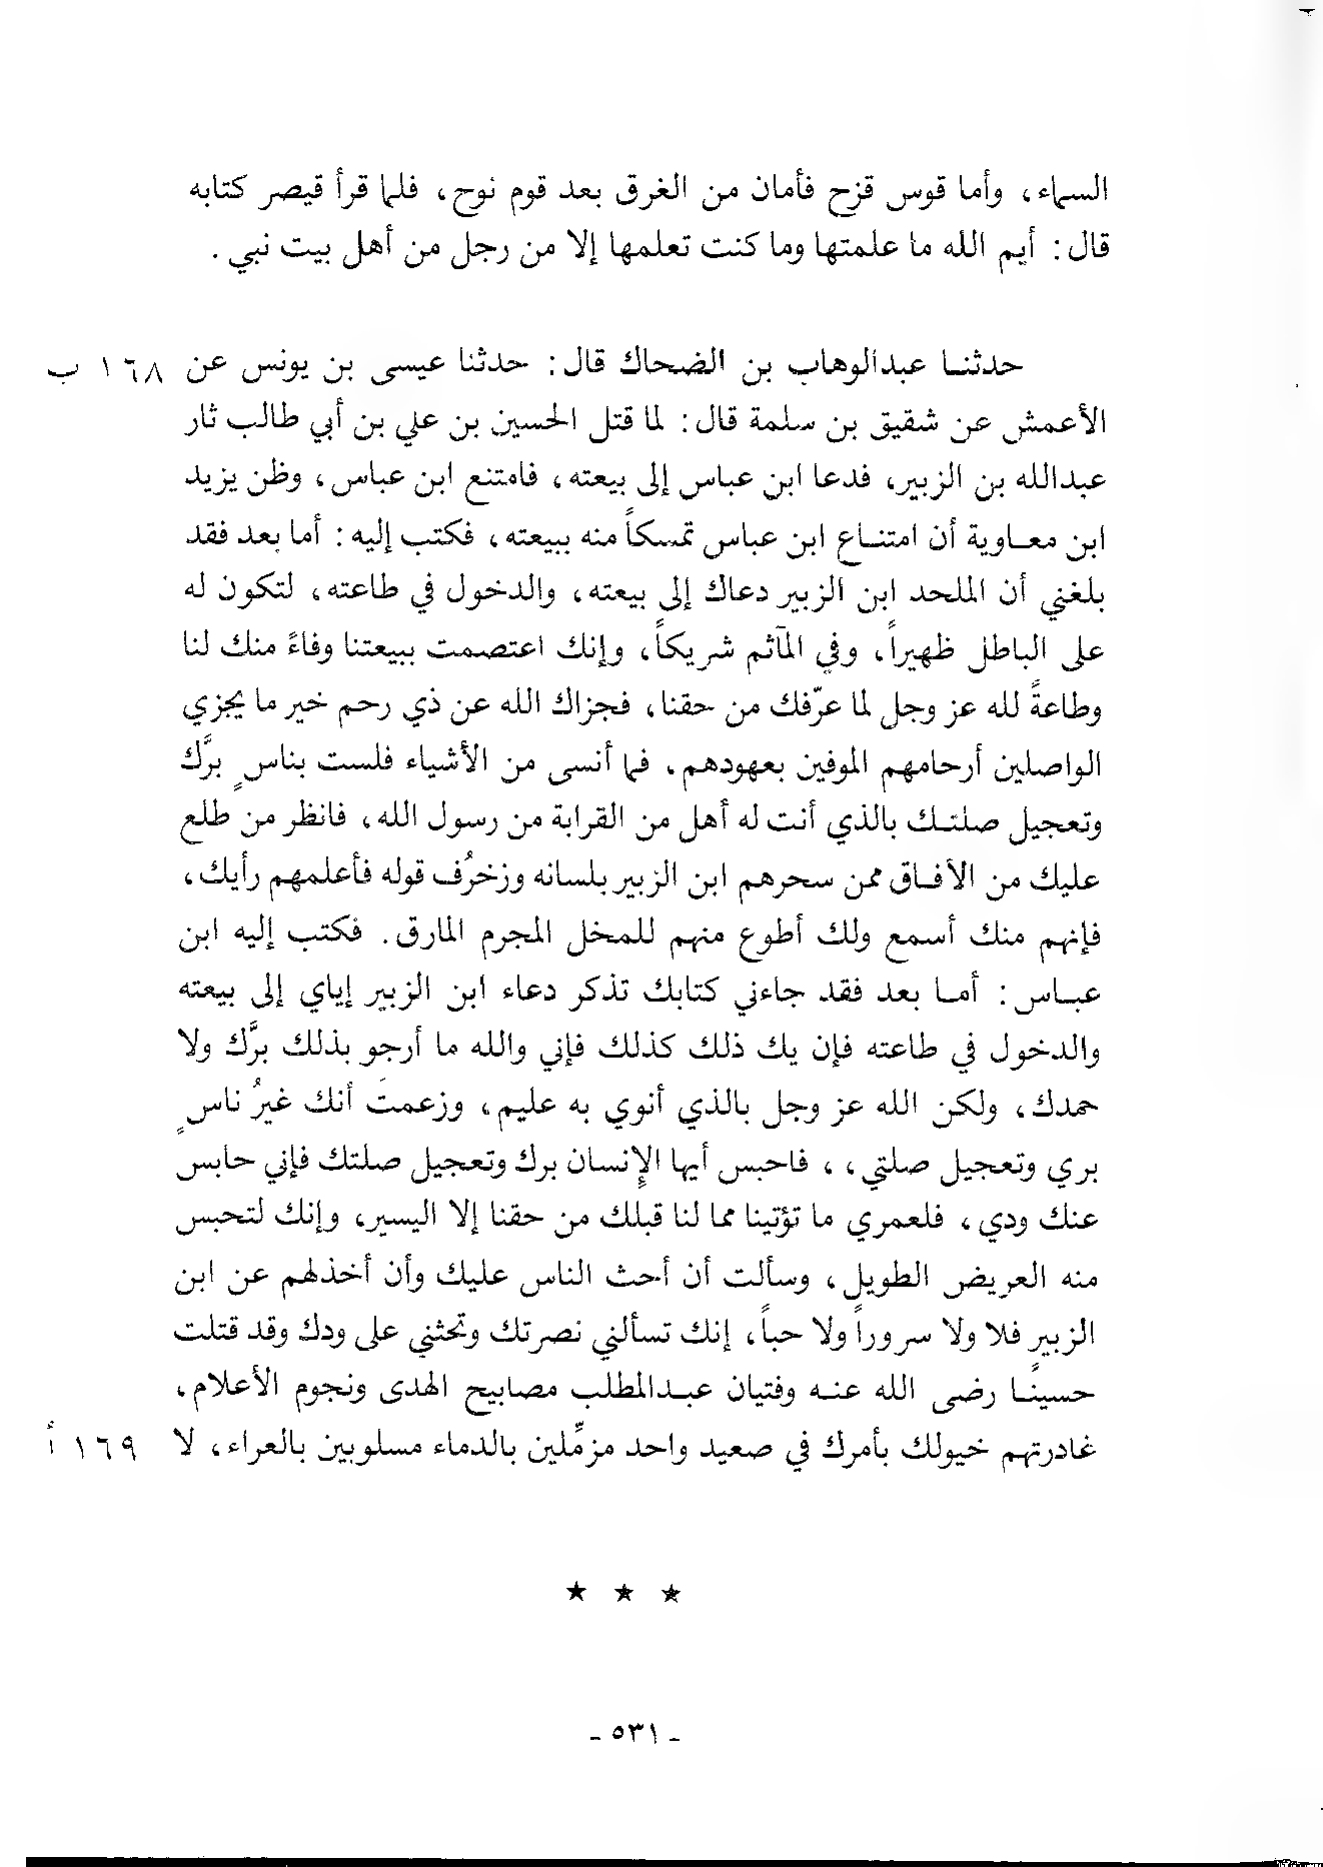 السماء، وأما قوس قزح فأمان من الغرق بعد قوم نوح، فلما قرأ قيصر كتابه
قال: أيم الله ما علمتها وما كنت تعلمها إلا من رجل من أهل بيت نبي.
حدثنا عبدالوهاب بن الضحاك قال: حدثنا عيسى بن يونس عن ١٦٨ ب
الأعمش عن شقيق بن سلمة قال: لما قتل الحسين بن علي بن أبي طالب ثار
عبدالله بن الزبير، فدعا ابن عباس إلى بيعته، فامتنع ابن عباس، وظن يزيد
ابن معاوية أن امتناع ابن عباس تمسكاً منه ببيعته، فكتب إليه: أما بعد فقد
بلغني أن الملحد ابن الزبير دعاك إلى بيعته، والدخول في طاعته، لتكون له
على الباطل ظهيراً، وفي المآثم شريكاً، وإنك اعتصمت ببيعتنا وفاءً منك لنا
وطاعةً لله عز وجل لما عرّفك من حقنا، فجزاك الله عن ذي رحم خير ما يجزي
الواصلين أرحامهم الموفين بعهودهم، فما أنسى من الأشياء فلست بناسٍ برَّك
وتعجيل صلتك بالذي أنت له أهل من القرابة من رسول الله، فانظر من طلع
عليك من الأفاق ممن سحرهم ابن الزبير بلسانه وزخرُف قوله فأعلمهم رأيك،
فإنهم منك أسمع ولك أطوع منهم للمخل المجرم المارق. فكتب إليه ابن
عباس: أما بعد فقد جاءني كتابك تذكر دعاء ابن الزبير إياي إلى بيعته
والدخول في طاعته فإن يك ذلك كذلك فإني والله ما أرجو بذلك برَّك ولا
حمدك، ولكن الله عز وجل بالذي أنوي به عليم، وزعمتَ أنك غيرُ ناسٍ
بري وتعجيل صلتي،، فاحبس أيها الإنسان برك وتعجيل صلتك فإني حابس
عنك ودي، فلعمري ما تؤتينا مما لنا قبلك من حقنا إلا اليسير، وإنك لتحبس
منه العريض الطويل، وسألت أن أحث الناس عليك وأن أخذلهم عن ابن
الزبير فلا ولا سروراً ولا حباً، إنك تسألني نصرتك وتحثني على ودك وقد قتلت
حسيناً رضى الله عنه وفتيان عبدالمطلب مصابيح الهدى ونجوم الأعلام،
غادرتهم خيولك بأمرك في صعيد واحد مزمِّلين بالدماء مسلوبين بالعراء، لا ١٦٩ أ
★ ★ ★
ـ ٥٣١ ـ